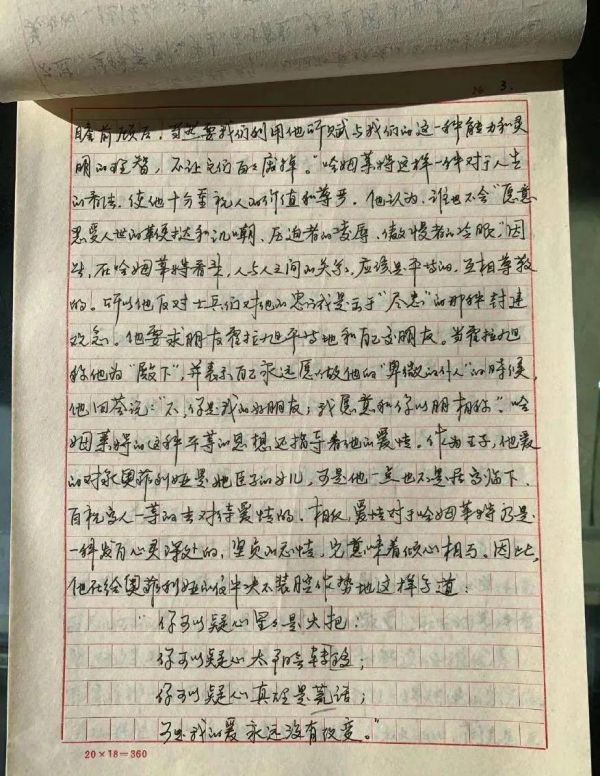 3.
瞻前顾后，当然要我们利用他所赋与我们的这一种能力和灵
明的理智，不让它们白白废掉。"哈姆莱特这样一种对于人生
的看法，使他十分重视人的价值和尊严。他认为，谁也不会"愿意
忍受人世的鞭挞和讥嘲、压迫者的凌辱、傲慢者的冷眼"因
此，在哈姆莱特看来，人与人之间的关系，应该是平等的，互相尊敬
的。所以他反对士兵们对他的忠诚是出于"尽忠"的那种封建
观念。他要求朋友霍拉旭平等地和自己交朋友。当霍拉旭
称他为"殿下"，并表示自己永远愿做他的"卑微的仆人"的时候，
他回答说："不，你是我的好朋友；我愿意和你以朋相称"。哈
姆莱特的这种平等的思想还指导着他的爱情。作为王子，他爱
的对象奥菲利娅是他臣子的女儿，可是他一点也不是居高临下，
自视高人一等的去对待爱情的。相反，爱情对于哈姆莱特乃是
一种发自心灵深处的，坚贞的感情，它意味着倾心相与。因此，
他在给奥菲利娅的信中决不装腔作势地这样写道：
"你可以疑心星星是火把；
你可以疑心太阳会转移；
你可以疑心真理是谎话；
可是我的爱永远没有改变。"
20×18=360